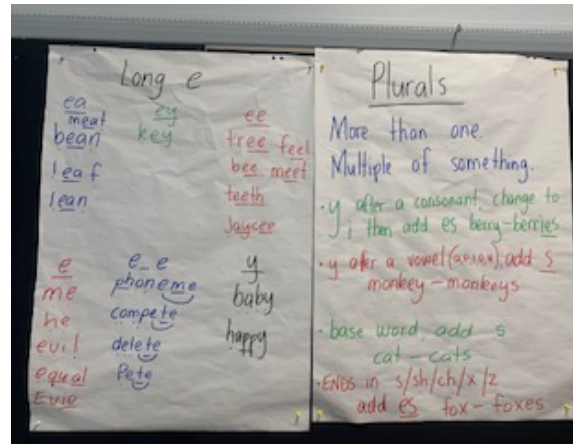 Long e
ea
meat
bean
leaf
lean
ey
key
ee
tree feel
bee meet
teeth
Jaycee
e
me
he
evil
equal
Evie
e_e
phoneme
compete
delete
Pete
y
baby
happy
Plurals
More than one.
Multiple of something.
• y after a consonant, change to
i, then add es berry-berries
• y after a vowel (a,e,i,o,u), add s
monkey - monkeys
• base word, add s
cat - cats
• ENDS in s/sh/ch/x/z
add es fox - foxes